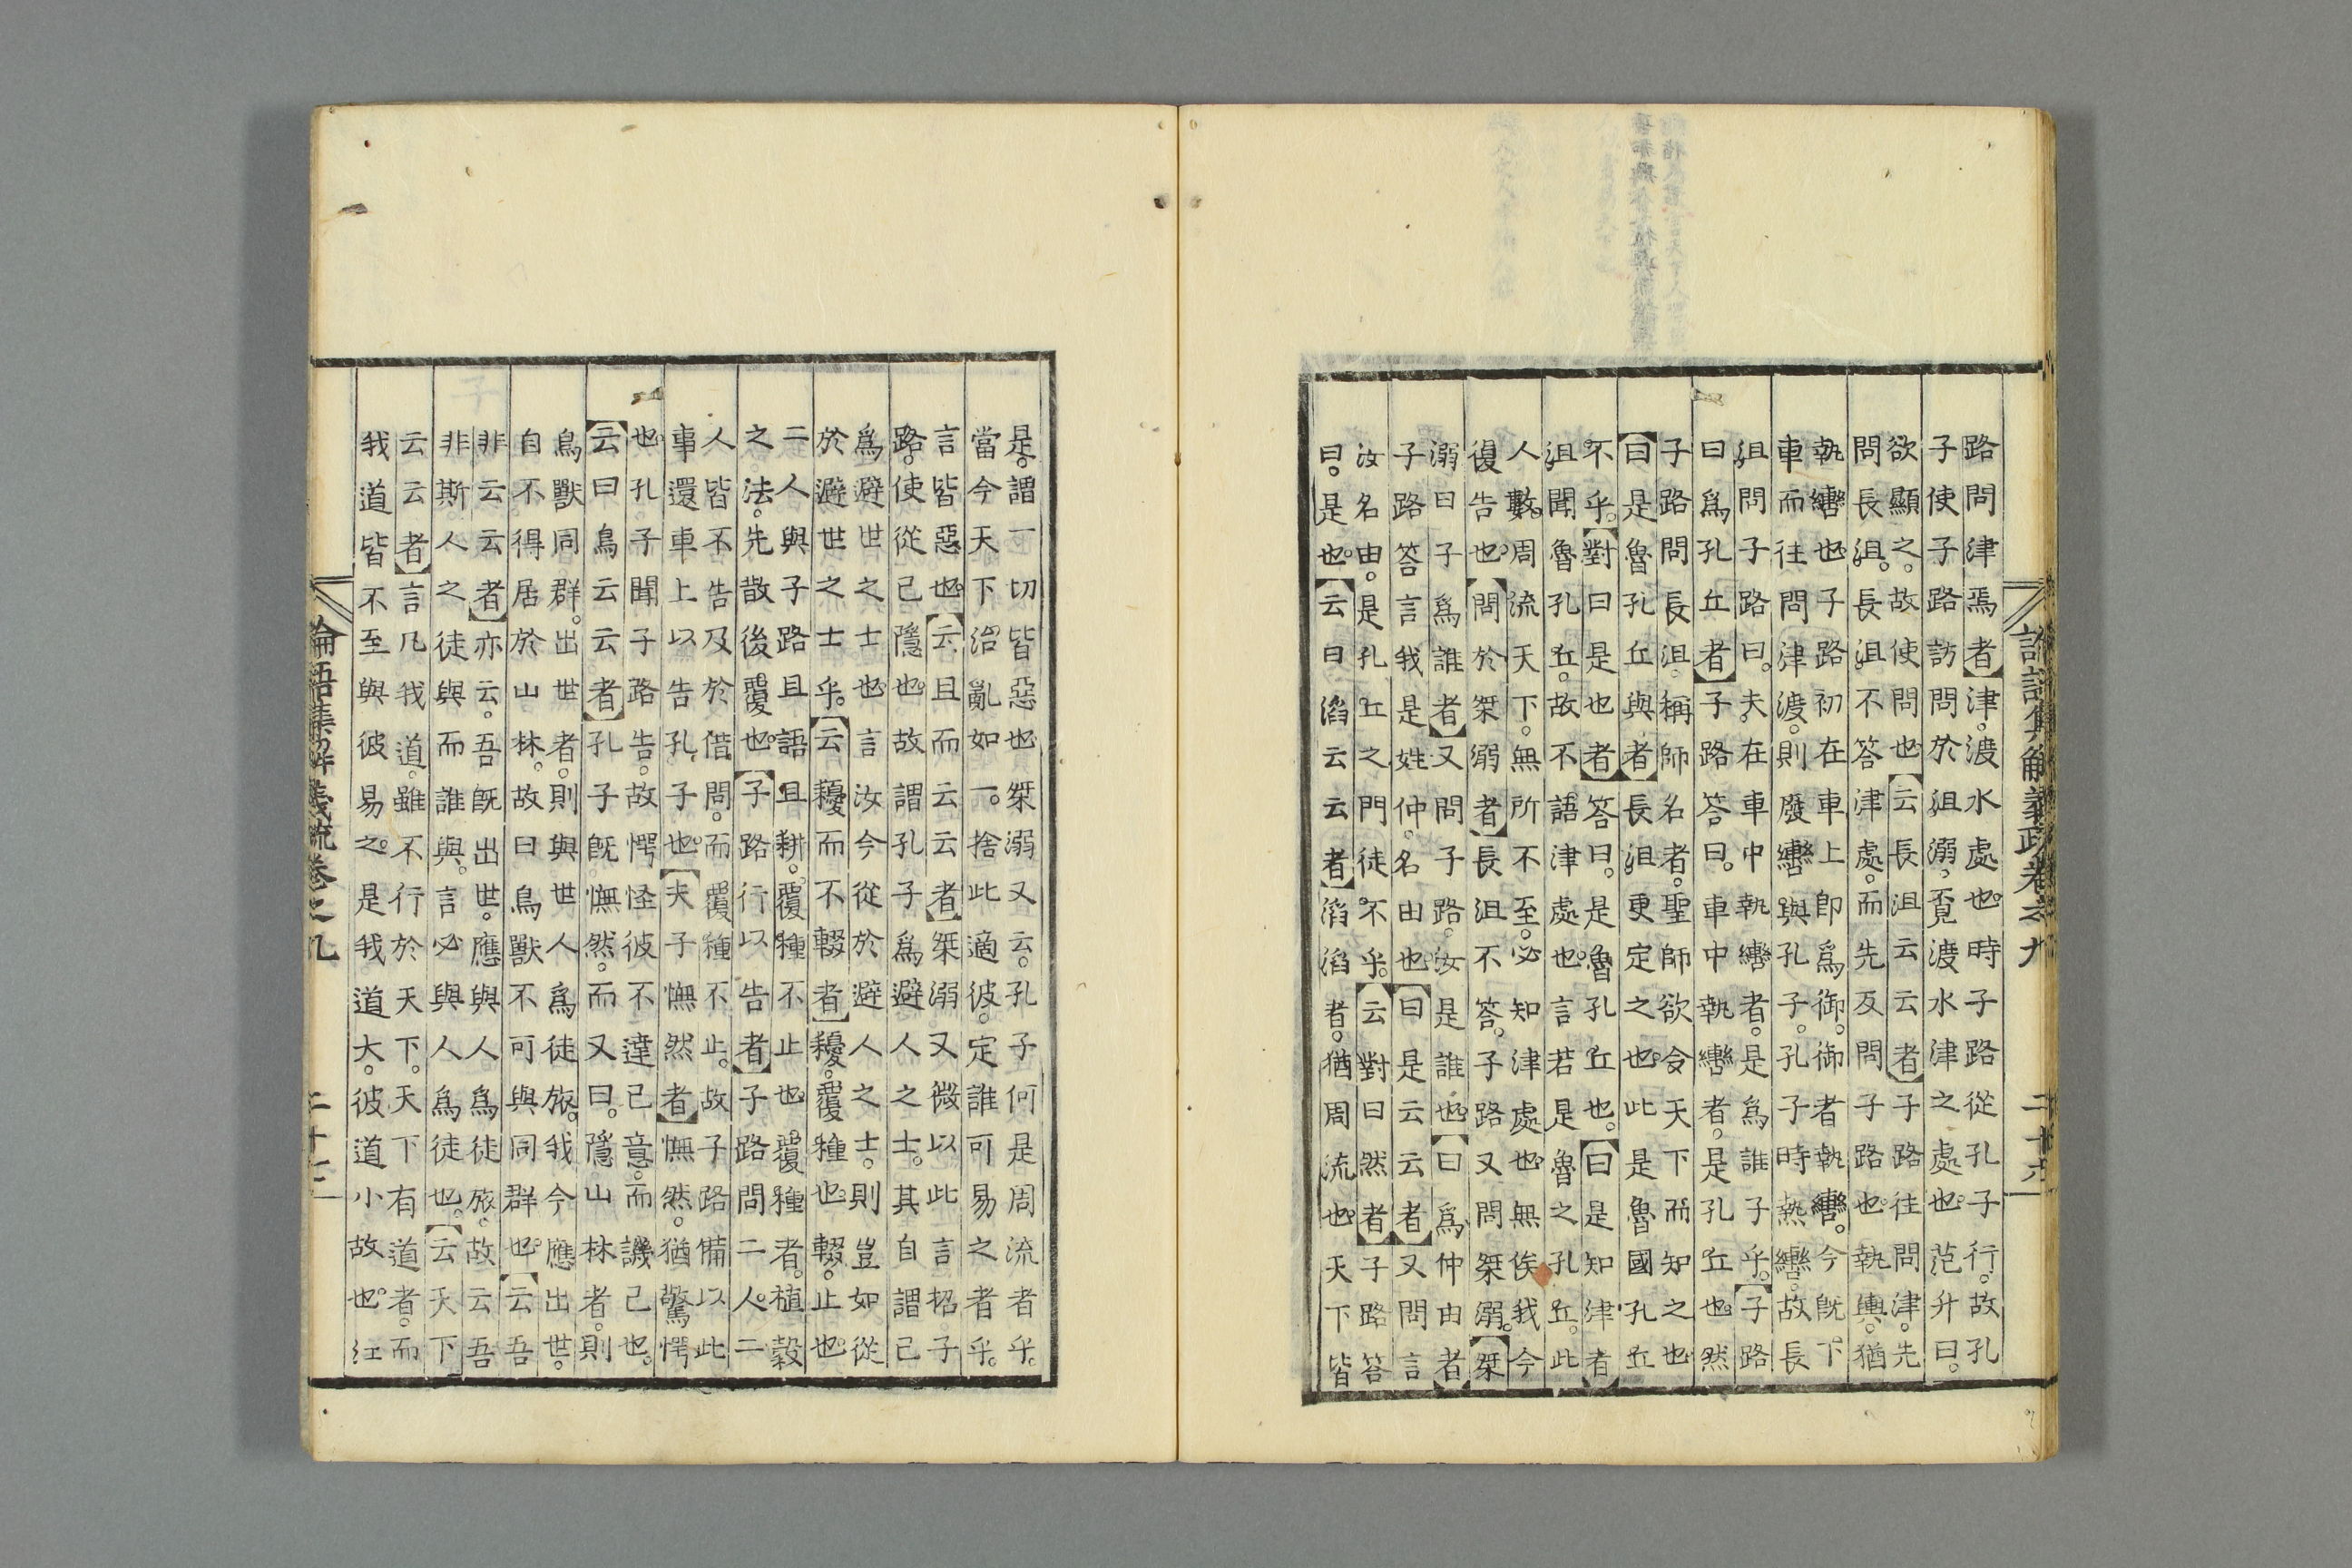 路問津焉者】津。渡水處也。時子路從孔子行。故孔
子使子路訪問於沮溺。覓渡水津之處也。范升曰。
欲顯之。故使問也。【云長沮云云者】子路往問津。先
問長沮。長沮不答津處。而先反問子路也。執輿。猶
執轡也。子路初在車上即爲御。御者執轡。今既下
車而往問津渡。則廢轡與孔子。孔子時執轡。故長
沮問子路曰。夫在車中執轡者。是爲誰子乎。【子路
曰爲孔丘者】子路答曰。車中執轡者。是孔丘也。然
子路問長沮。稱師名者。聖師欲令天下而知之也
【曰是魯孔丘與者】長沮更定之也。此是魯國孔丘
不乎。【對曰是也者】答曰。是魯孔丘也。【曰是知津者】
沮聞魯孔丘。故不語津處也。言若是魯之孔丘。此
人數周流天下。無所不至。必知津處也。無俟我今
復告也。【問於桀溺者】長沮不答。子路又問桀溺。【桀
溺曰子爲誰者】又問子路。汝是誰也。【曰爲仲由者】
子路答言我是姓仲。名由也。【曰是云云者】又問言
汝名由。是孔丘之門徒不乎。【云對曰然者】子路答
曰。是也。【云曰滔云云者】滔滔者。猶周流也。天下皆
是。謂一切皆惡也桀溺又云。孔子何是周流者乎。
當今天下治亂如一。捨此適彼。定誰可易之者乎。
言皆惡也【云且而云云者】桀溺又微以此言招子
路。使從己隱也。故謂孔子爲避人之士。其自謂己
爲避世之士也。言汝今從於避人之士。則豈如從
於避世之士乎。【云耰而不輟者】耰。覆種也。輟。止也。
二人與子路且語且耕。覆種不止也。覆種者。植穀
之法。先散後覆也。【子路行以告者】子路問二人。二
人皆不告及於借問。而覆種不止。故子路備以此
事還車上以告孔子也。【夫子憮然者】憮然。猶驚愕
也。孔子聞子路告。故愕怪彼不達己意。而譏己也。
【云曰鳥云云者】孔子既憮然。而又曰。隱山林者。則
鳥獸同群。出世者。則與世人爲徒旅。我今應出世。
自不得居於山林。故曰鳥獸不可與同群也。【云吾
非云云者】亦云。吾既出世。應與人爲徒旅。故云吾
非斯人之徒與而誰與。言必與人爲徒也。【云天下
云云者】言凡我道。雖不行於天下。天下有道者。而
我道皆不至與彼易之。是我道大。彼道小故也。江
論語集解義疏卷之九